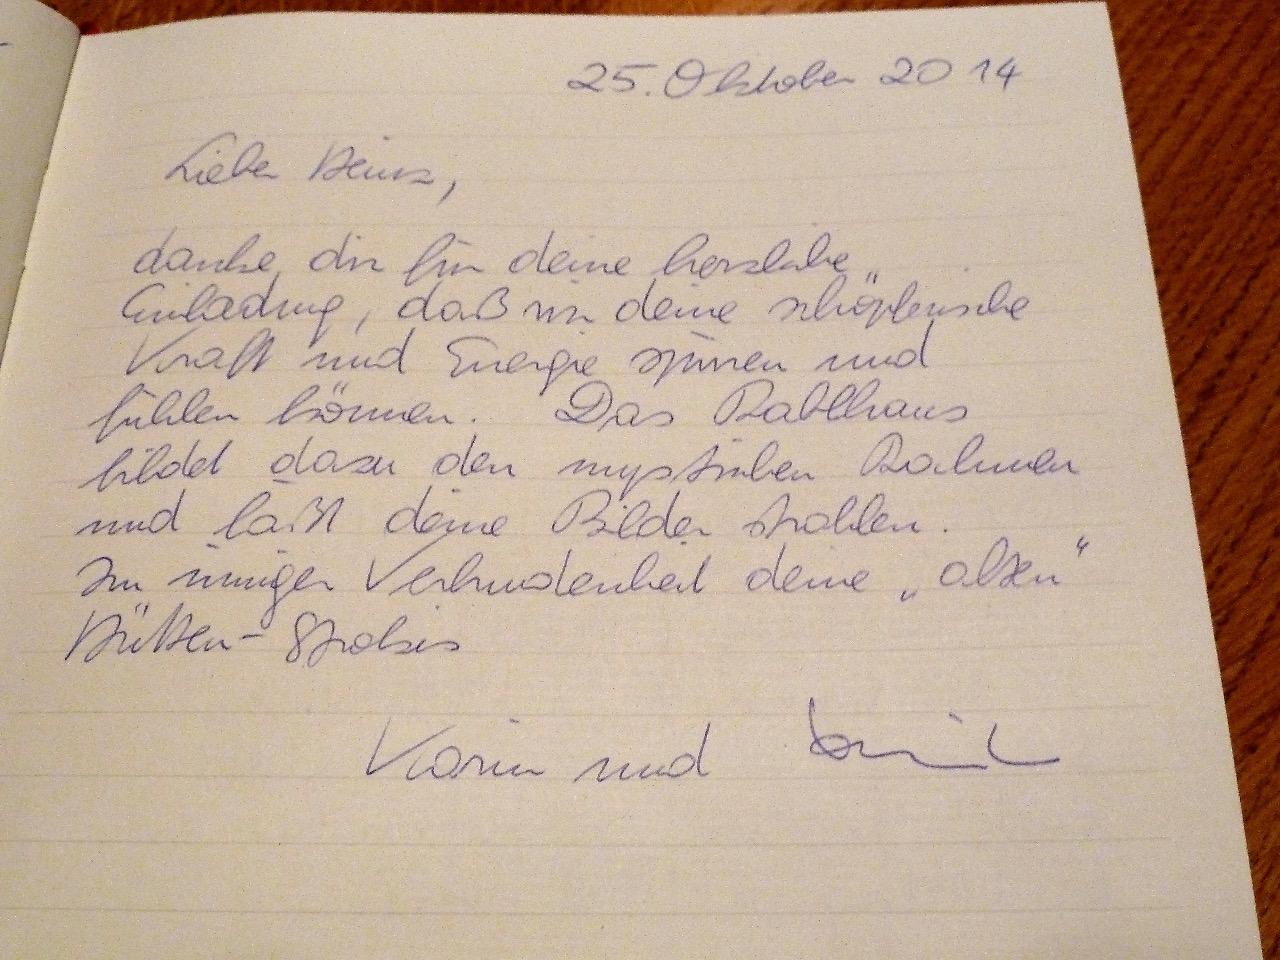 25. Oktober 2014
Lieber Heinz,
danke dir für deine herzliche
Einladung, daß wir deine schöpferische
Kraft und Energie spüren und
fühlen können. Das Rablhaus
bildet dazu den mystischen Rahmen
und läßt deine Bilder strahlen.
In inniger Verbundenheit deine „alten“
Hütten-
Karin und